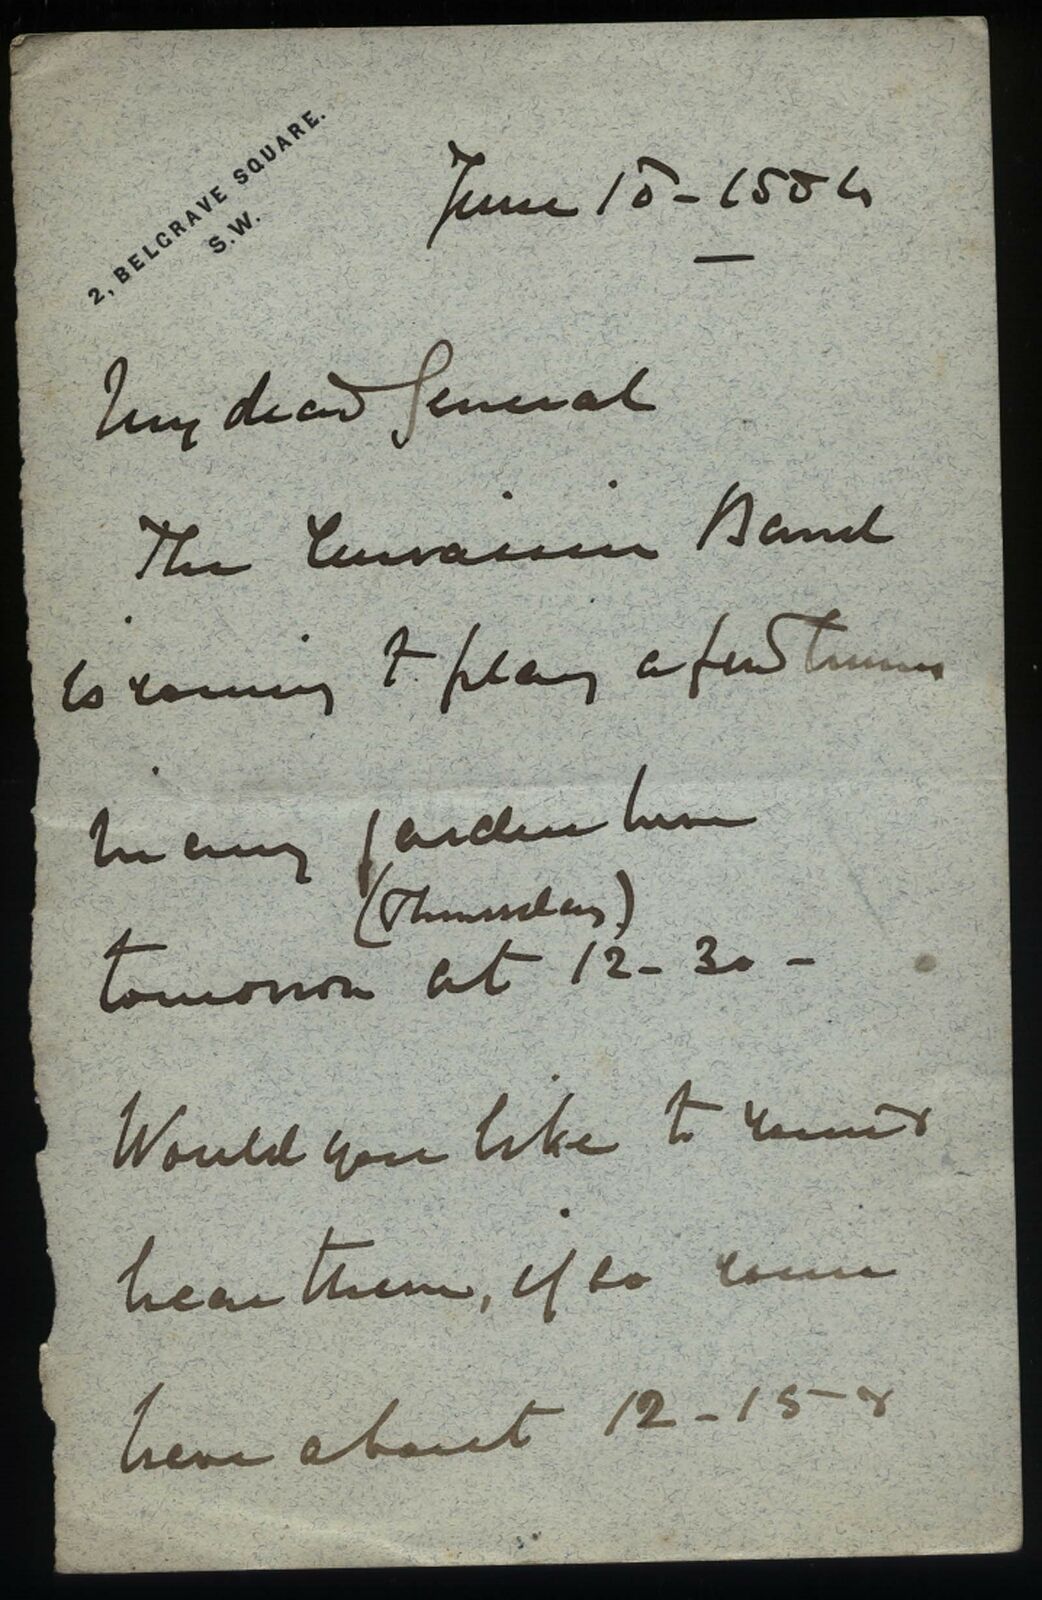 2, BELGRAVE SQUARE.
S.W.
June 18 - 1884
My dear General
The Cuirassier Band
is coming to play a few tunes
in my garden here
(Thursday)
tomorrow at 12-30 -
Would you like to come &
hear them, if so come
here about 12-15 &